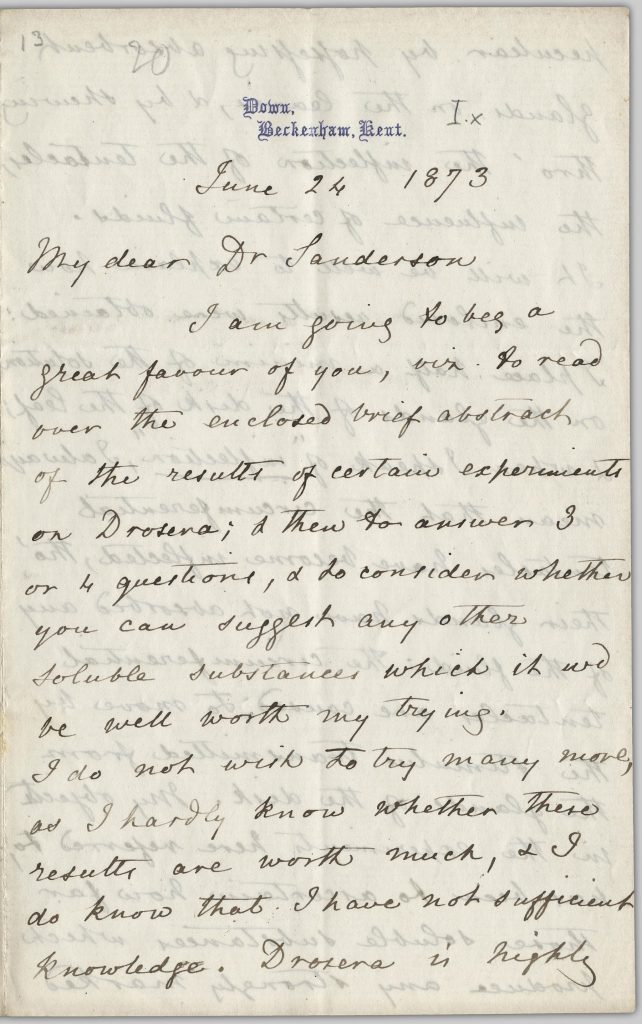 13
20
I.x
Down,
Beckenham, Kent.
June 24 1873
My dear Dr Sanderson
I am going to beg a
great favour of you, viz. to read
over the enclosed brief abstract
of the results of certain experiments
on Drosera; & then to answer 3
or 4 questions, & to consider whether
you can suggest any other
soluble substances which it wd
be well worth my trying.
I do not wish to try many more,
as I hardly know whether these
results are worth much, & I
do know that I have not sufficient
knowledge. Drosera is highly